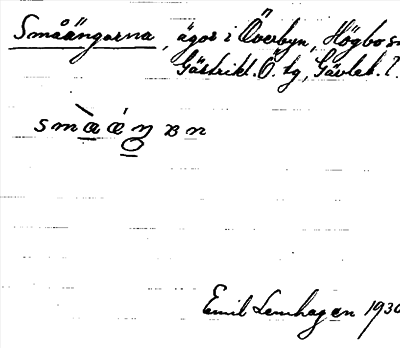 Småängarna, ägor i Överbyn, Högbo
Gästrikl. Ö. tg, Gävleb. l.
Emil Lemhagen 1930